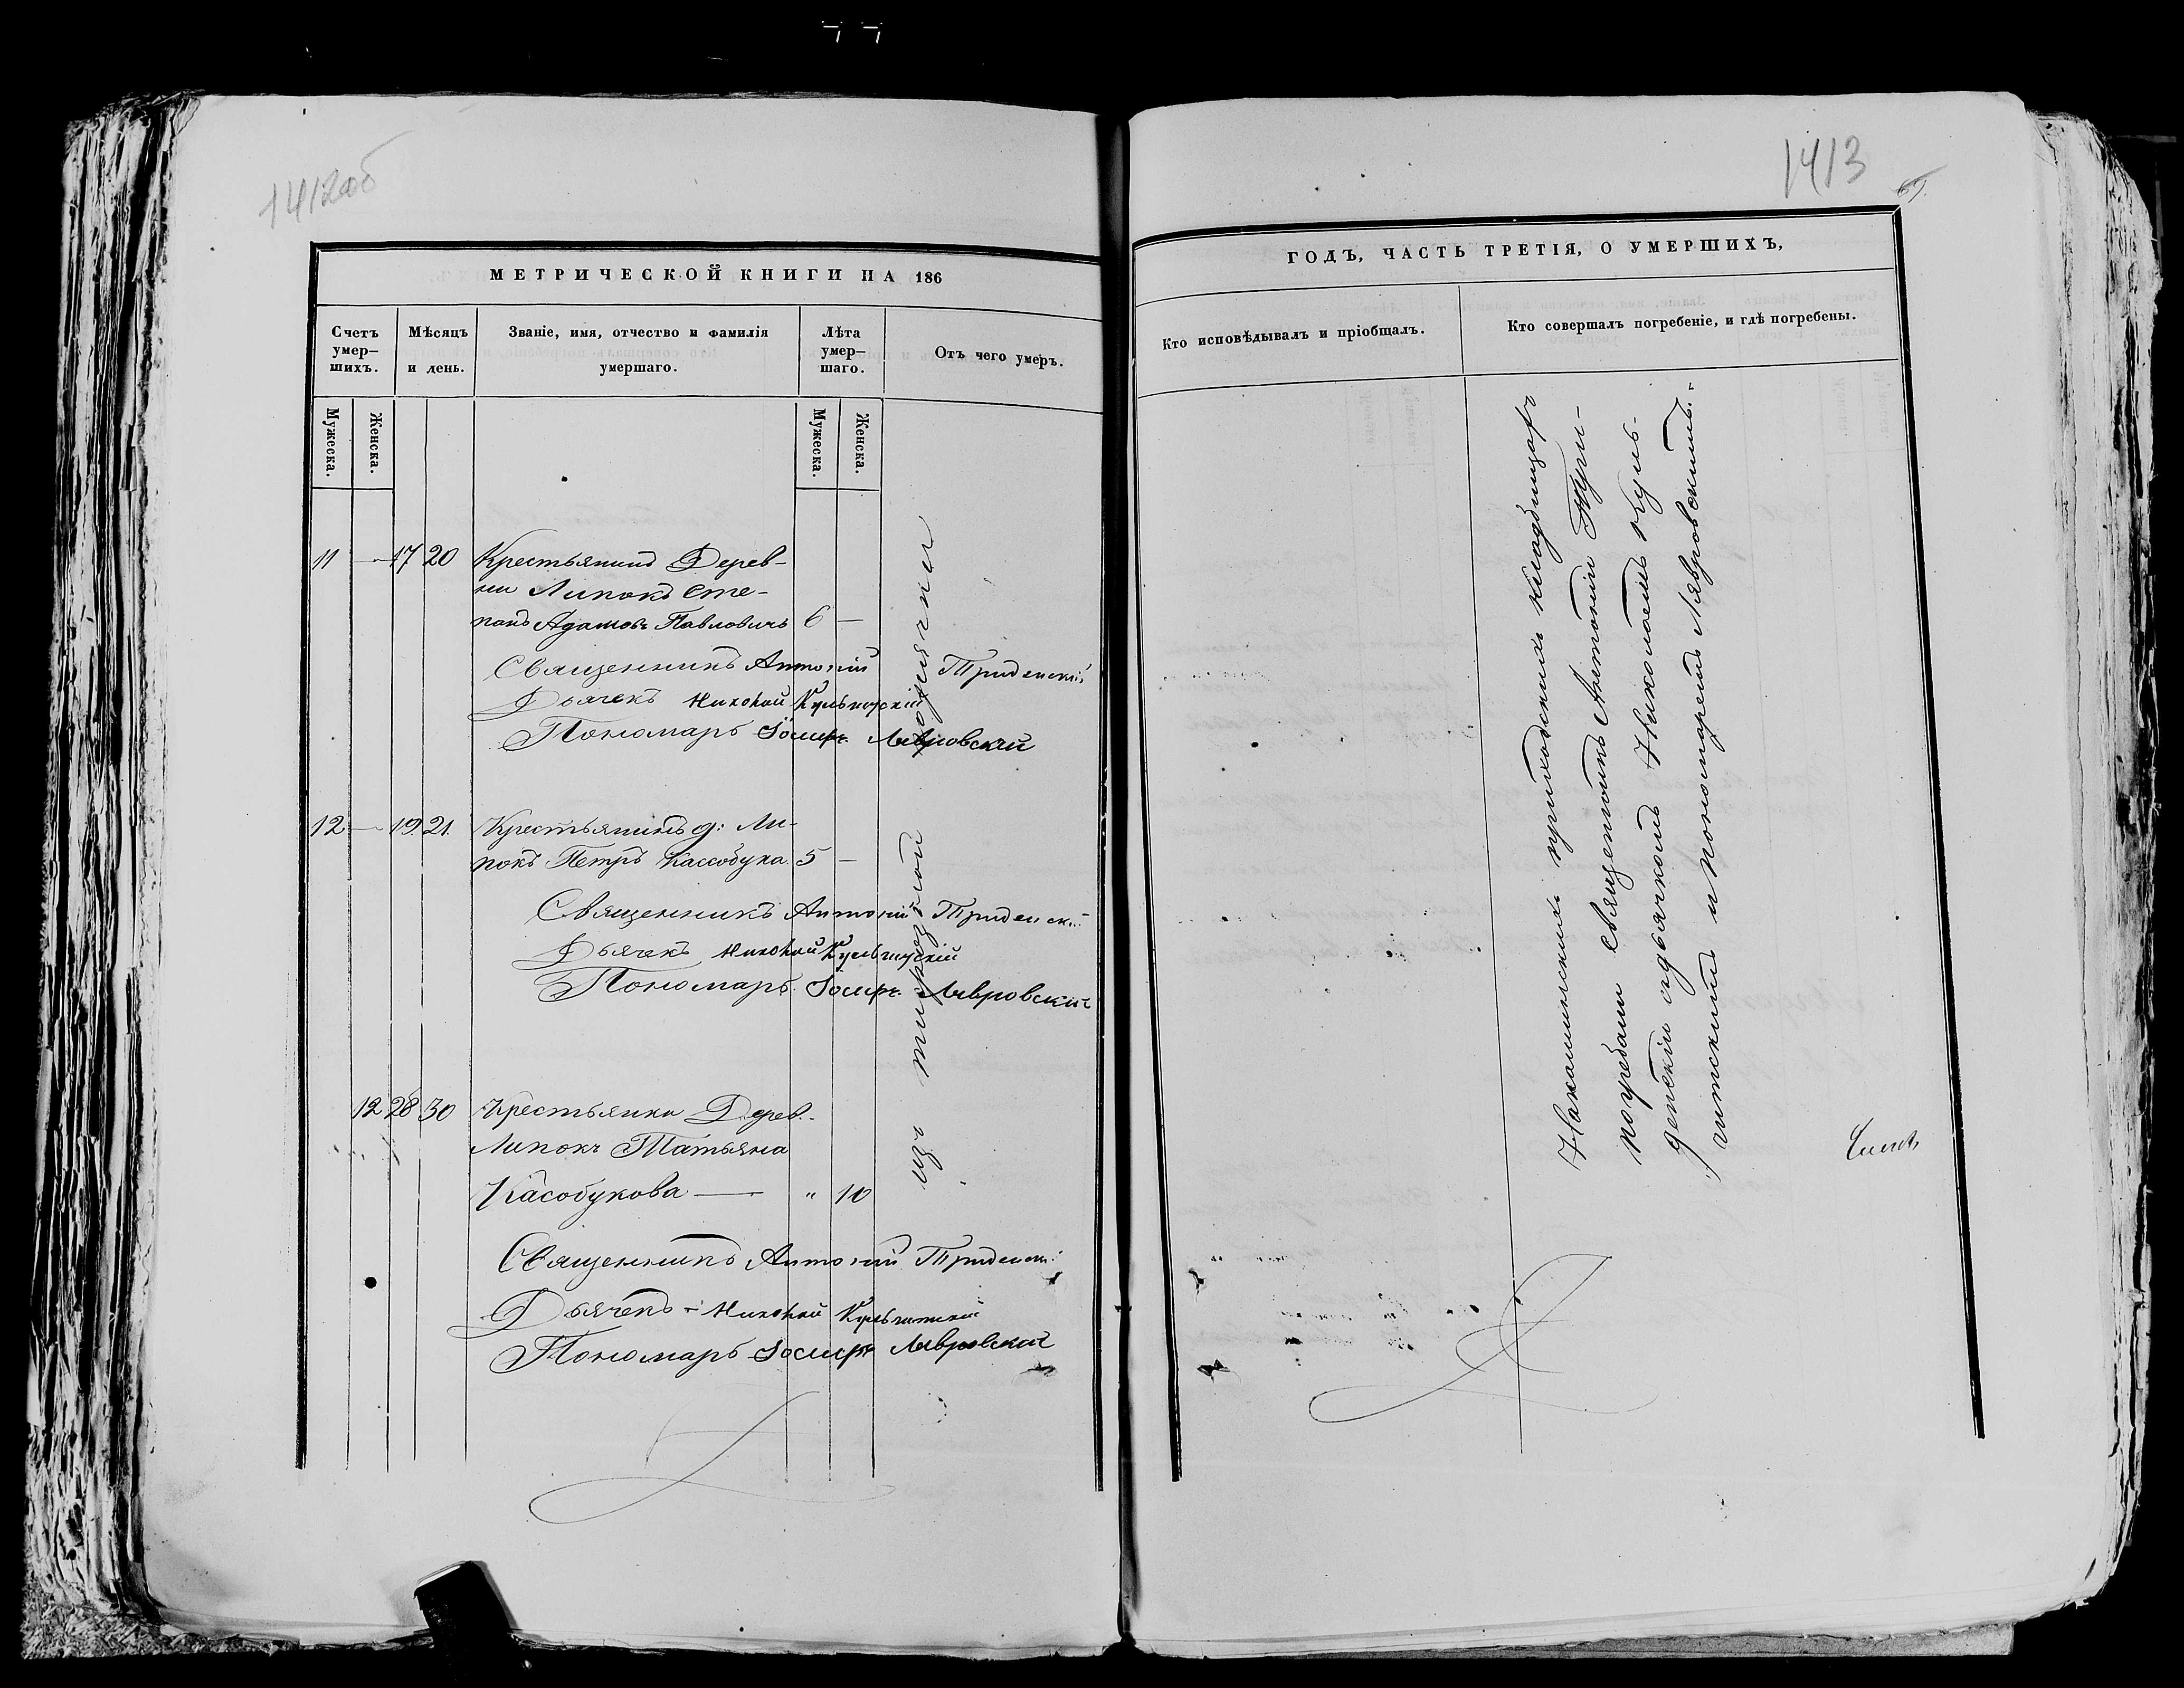 1412об
МЕТРИЧЕСКОЙ КНИГИ НА 186
Счетъ умер–шихъ.
Мѣсяцъ и день.
Званіе, имя, отчество и фамилія умершаго.
Лѣта умер–шаго.
Отъ чего умеръ.
Мужеска.
Женска.
Мужеска.
Женска.
11 — 17 20 Крестьянинъ Дерев-
ни Липокъ Сте-
панъ Адамовъ Павловичъ 6 —
горячки
Священникъ Антоній Триденскій
Дьячекъ Николай Кульчитскій
Пономарь Іосифъ Лавровскій
12 — 19 21. Крестьянинъ д: Ли-
покъ Петръ Кассобука 5 —
Священникъ Антоній Триденскій
Дьячекъ Николай Кульчитскій
Пономарь Іосифъ Лавровскій
12 28 30 Крестьянка Дерев.
Липокъ Татьяна
Касобукова — „ 10
изъ
Священникъ Антоній Триденскій
Дьячекъ – Николай Кульчитскій
Пономарь Іосифъ Лавровскій
1413
69.
ГОДЪ, ЧАСТЬ ТРЕТІЯ, О УМЕРШИХЪ,
Кто исповѣдывалъ и пріобщалъ.
Кто совершалъ погребеніе, и гдѣ погребены.
На приходскихъ кладбищахъ
погребалъ священникъ Антоній Три-
денскій съ дьячкомъ Николаемъ Куль-
читскимъ и пономаремъ Лавровскимъ.-